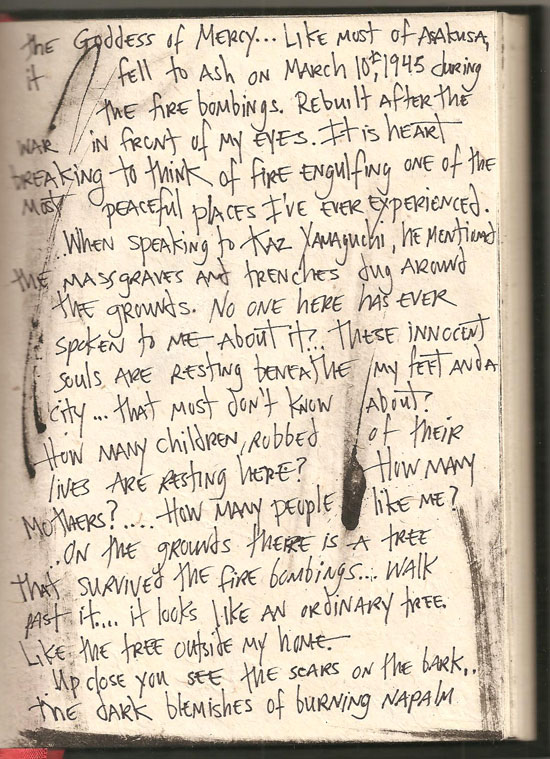 the Goddess of Mercy... Like most of Asakusa,
it fell to ash on March 10th, 1945 during
the fire bombings. Rebuilt after the
war in front of my eyes. It is heart
breaking to think of fire engulfing one of the
most peaceful places I've ever experienced.
.When speaking to Kaz Yamaguchi, he mentioned
the mass graves and trenches dug around
the grounds. No one here has ever
spoken to me about it?.. These innocent
souls are resting beneathe my feet and a
city... that most don't know about?
How many children, robbed of their
lives are resting here? How many
Mothers?..... How many people like me?
..On the grounds there is a tree
that survived the fire bombings... Walk
past it.... it looks like an ordinary tree.
Like the tree outside my home.
.Up close you see the scars on the bark,.
the dark blemishes of burning napalm